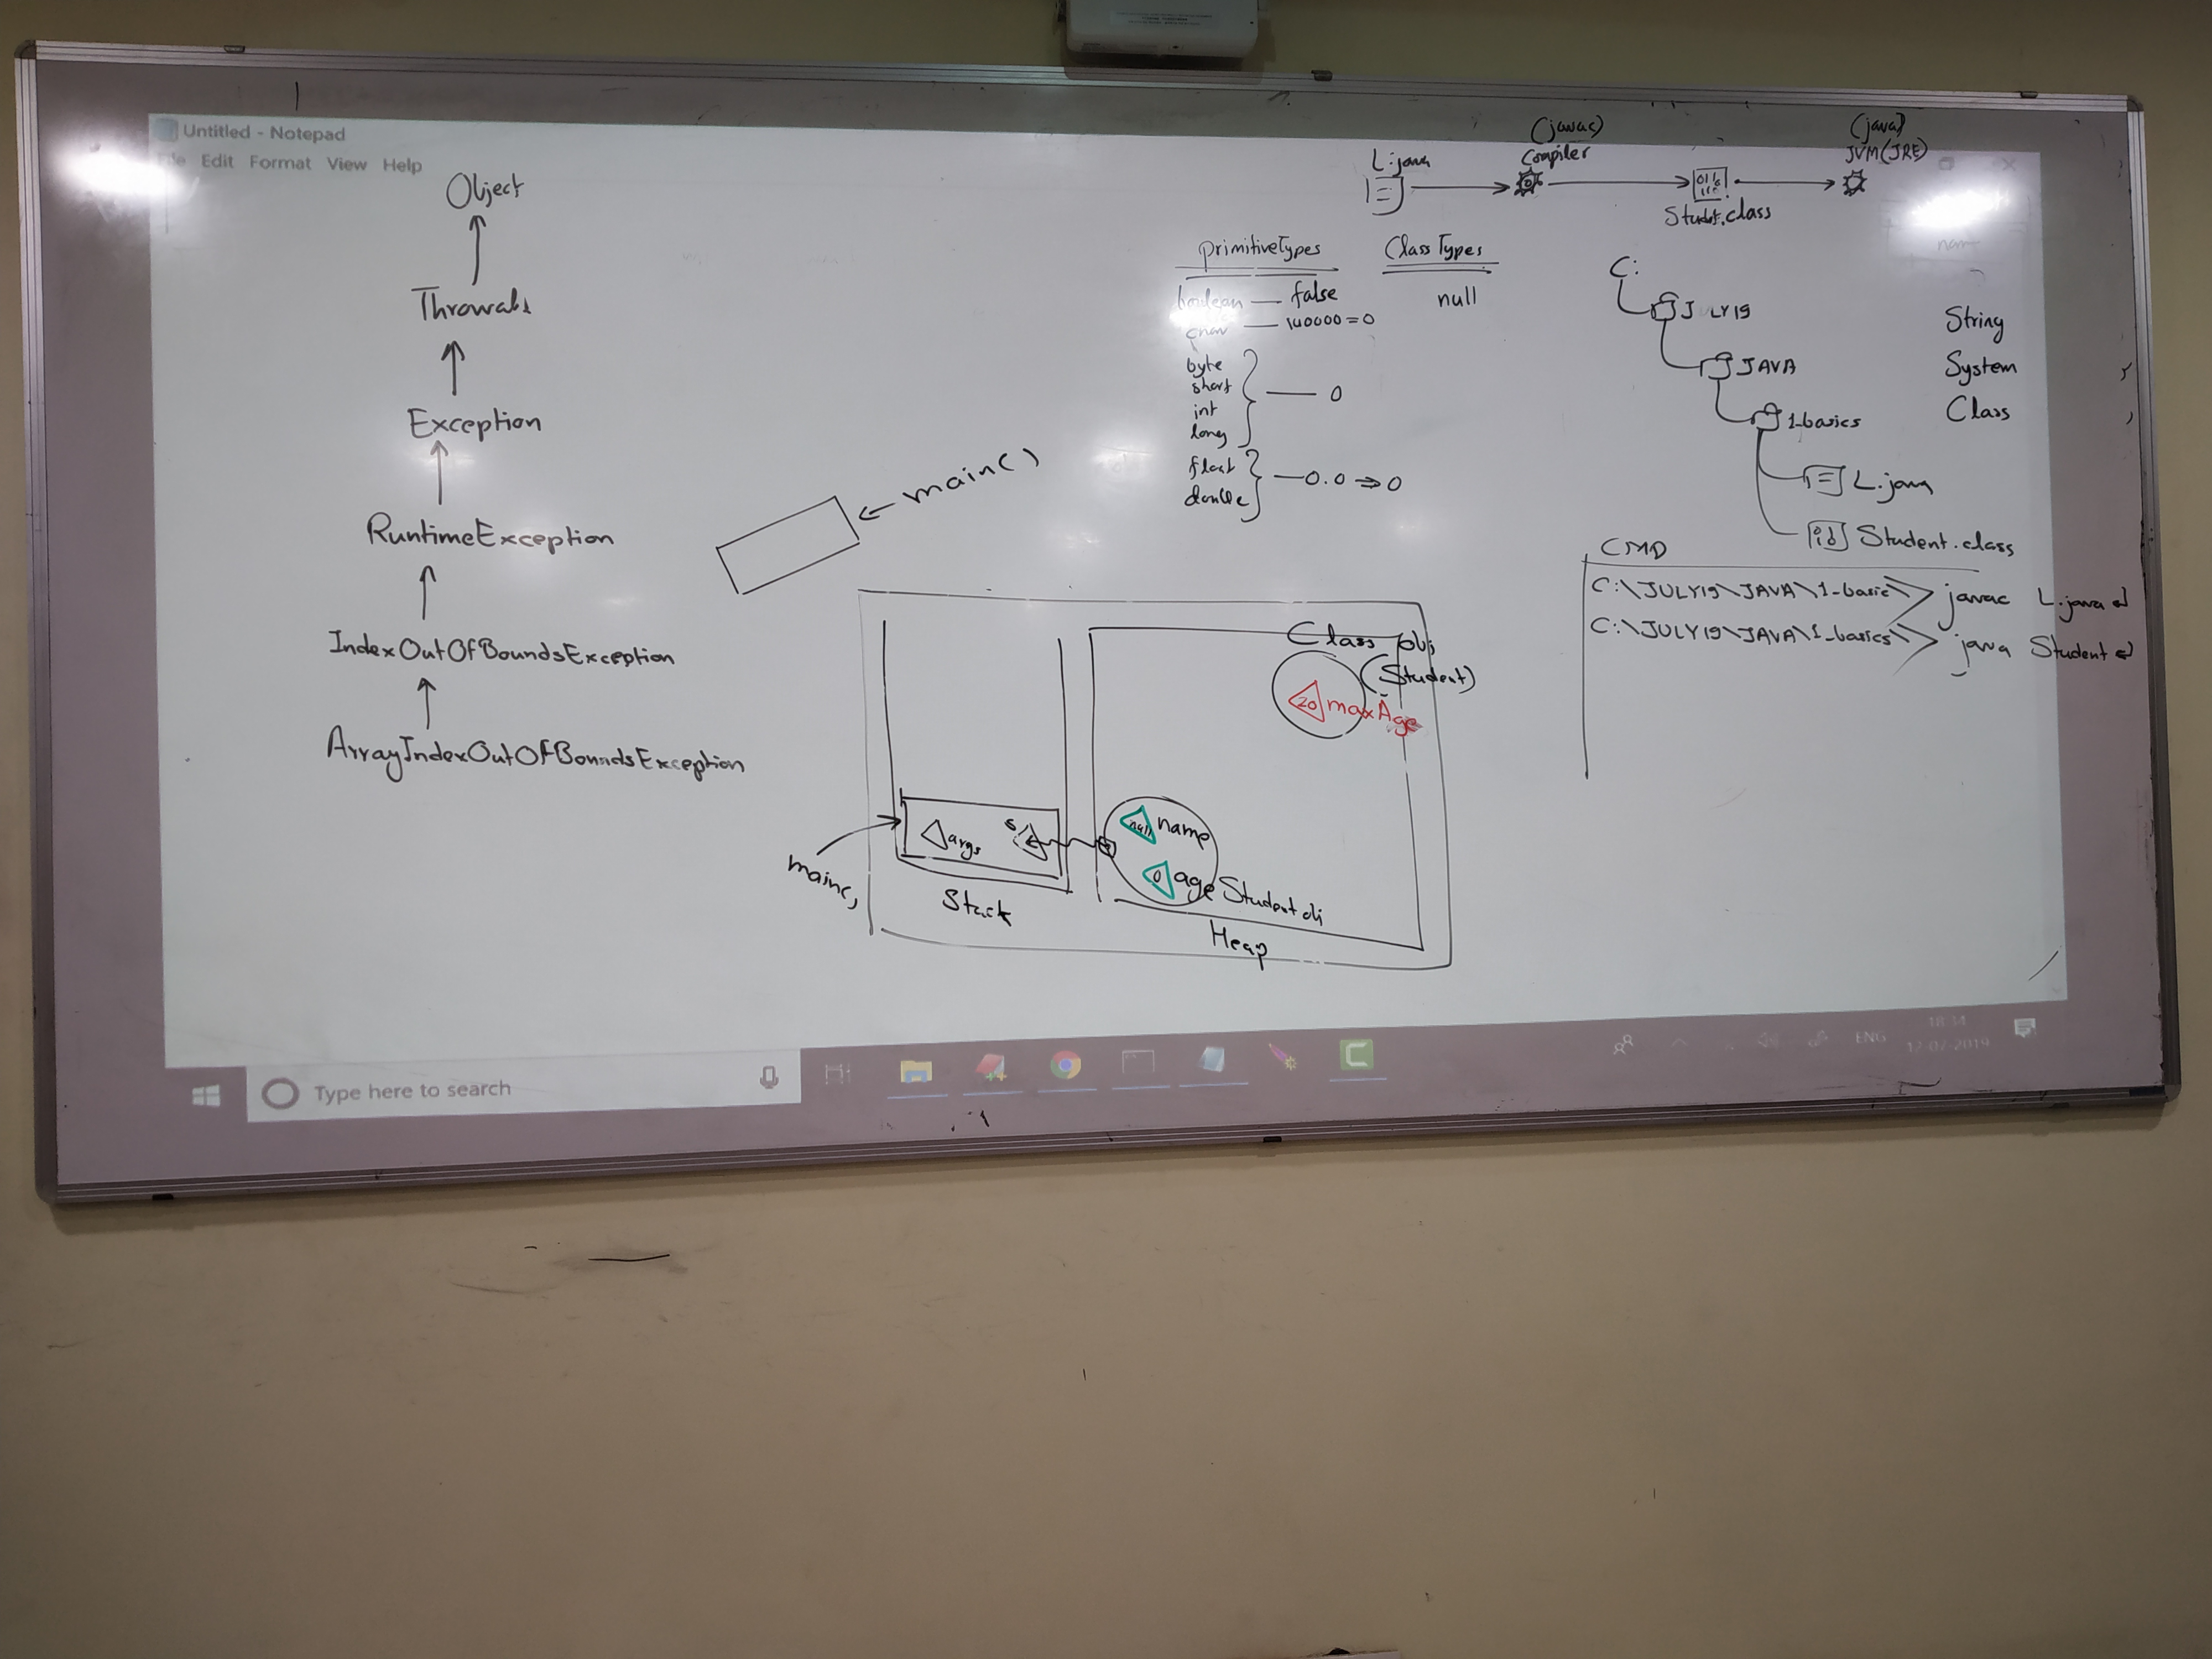 Untitled - Notepad
File Edit Format View Help
Object
Throwable
Exception
RuntimeException
IndexOutOfBoundsException
ArrayIndexOutOfBoundsException
main()
L.java
(javac)
Compiler
Student.class
(java)
JVM(JRE)
primitiveTypes
boolean — false
char — \u0000=0
byte
short
int
long
— 0
float
double
— 0.0 ⇒ 0
Class Types
null
C:
JULY19
JAVA
1-basics
L.java
Student.class
String
System
Class
CMD
C:\JULY19\JAVA\1-basic> javac L.java
C:\JULY19\JAVA\1-basics> java Student
Class obj
(Student)
20 maxAge
main()
args
s
Stack
null name
0 age
Student obj
Heap
Type here to search
ENG
18:34
12-07-2019